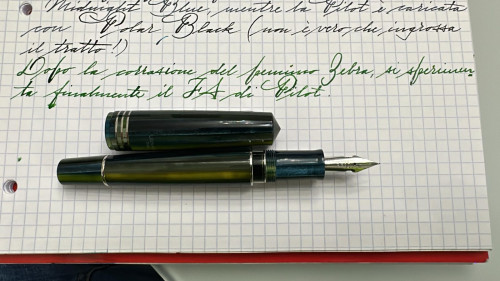 Midnight Blue, mentre la Pilot è caricata
con Polar Black (non è vero, che ingrossa
il tratto!)
Dopo la corrosione del pennino Zebra, si sperimen-
ta finalmente il FA di Pilot.